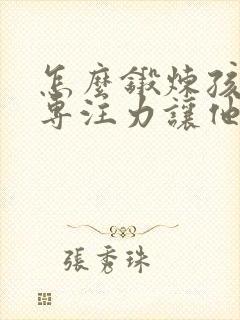 怎麼鍛煉孩
專注力讓他
張秀珠